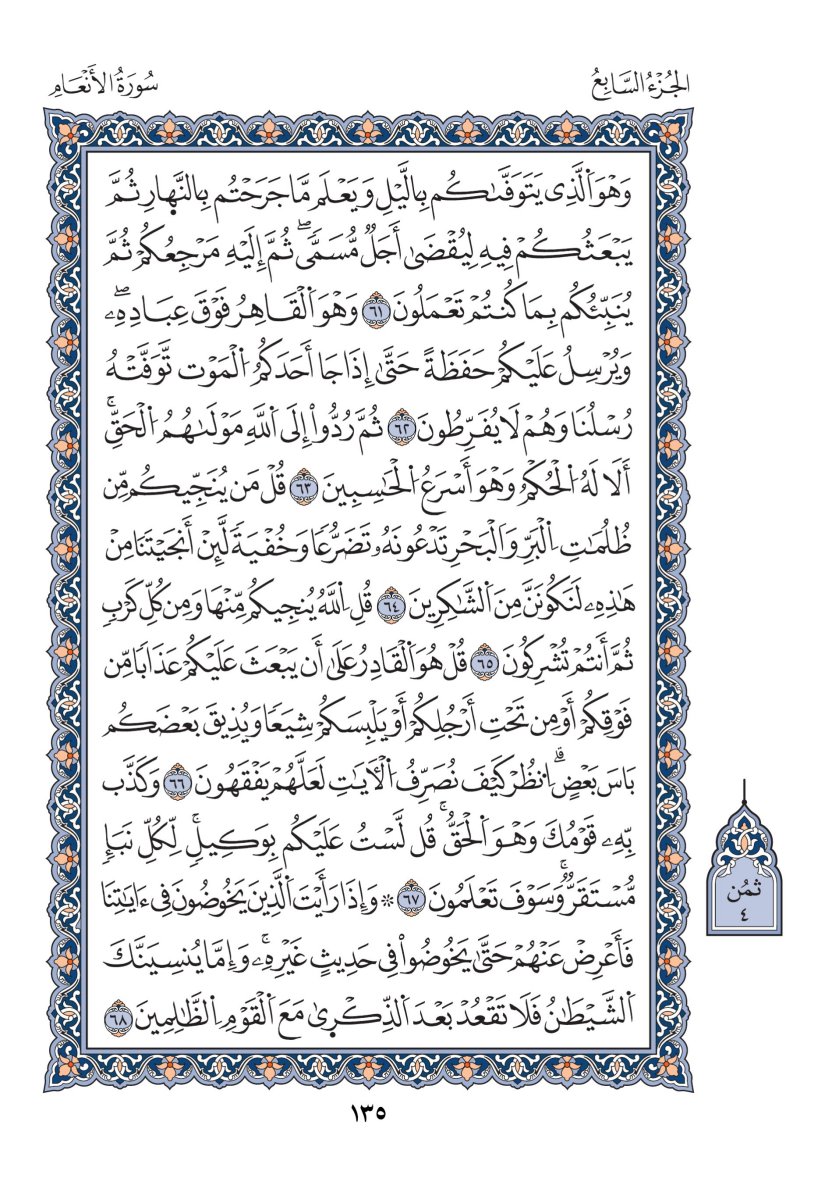 الجُزْءُ السَّابِعُ
سُورَةُ الأَنْعَامِ
وَهْوَ اَلَّذِى يَتَوَفَّىٰكُم بِالَّيْلِ وَيَعْلَم مَّا جَرَحْتُم بِالنَّهٰارِ ثُمَّ
يَبْعَثُكُمْ فِيهِ لِيُقْضَىٰ أَجَلٌ مُّسَمًّىۖ ثُمَّ إِلَيْهِ مَرْجِعُكُمْ ثُمَّ
يُنَبِّئُكُم بِمَا كُنتُمْ تَعْمَلُونَ ٦١ وَهْوَ اَلْقَاهِرُ فَوْقَ عِبَادِهِۦۖ
وَيُرْسِلُ عَلَيْكُمْ حَفَظَةً حَتَّىٰ إِذَا جَا أَحَدَكُمُ اُلْمَوْت تَّوَفَّتْهُ
رُسْلُنَا وَهُمْ لَا يُفَرِّطُونَ ٦٢ ثُمَّ رُدُّواْ إِلَى اَللَّهِ مَوْلَىٰهُمُ اُلْحَقِّۚ
أَلَا لَهُ اُلْحُكْمُ وَهْوَ أَسْرَعُ اُلْحَٰسِبِينَ ٦٣ قُلْ مَن يُنَجِّيكُم مِّن
ظُلُمَٰتِ اِلْبَرِّ وَالْبَحْرِ تَدْعُونَهُۥ تَضَرُّعًا وَخُفْيَةً لَّئِنْ أَنجَيْتَنَا مِنْ
هَٰذِهِۦ لَنَكُونَنَّ مِنَ اَلشَّٰكِرِينَ ٦٤ قُلِ اِللَّهُ يُنجِيكُم مِّنْهَا وَمِن كُلِّ كَرْبٍ
ثُمَّ أَنتُمْ تُشْرِكُونَ ٦٥ قُلْ هُوَ اَلْقَادِرُ عَلَىٰ أَن يَبْعَثَ عَلَيْكُمْ عَذَابًا مِّن
فَوْقِكُمْ أَوْ مِن تَحْتِ أَرْجُلِكُمْ أَوْ يَلْبِسَكُمْ شِيَعًا وَيُذِيقَ بَعْضَكُم
بَاسَ بَعْضٍۗ اِنظُرْ كَيْفَ نُصَرِّفُ اُلْأٓيَٰتِ لَعَلَّهُمْ يَفْقَهُونَ ٦٦ وَكَذَّب
بِّهِۦ قَوْمُكَ وَهْوَ اَلْحَقُّۚ قُل لَّسْتُ عَلَيْكُم بِوَكِيلٍۚ لِّكُلِّ نَبَإٍ
مُّسْتَقَرٌّۚ وَسَوْفَ تَعْلَمُونَ ٦٧ ۞ وَإِذَا رَأَيْتَ اَلَّذِينَ يَخُوضُونَ فِىٓ ءَايَٰتِنَا
فَأَعْرِضْ عَنْهُمْ حَتَّىٰ يَخُوضُواْ فِى حَدِيثٍ غَيْرِهِۦۚ وَإِمَّا يُنسِيَنَّكَ
اَلشَّيْطَٰنُ فَلَا تَقْعُدْ بَعْدَ اَلذِّكْرىٰ مَعَ اَلْقَوْمِ اِلظَّٰلِمِينَ ٦٨
ثمُن
٤
١٣٥